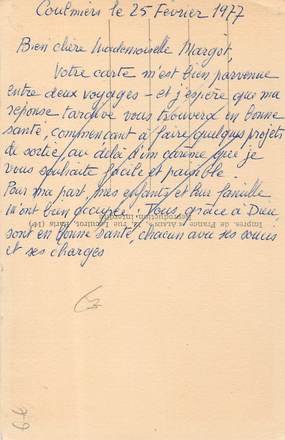 Coulmiers le 25 Février 1977
Bien chère Mademoiselle Margot,
Votre carte m'est bien parvenue
entre deux voyages - et j'espère que ma
réponse tardive vous trouvera en bonne
santé, commençant à faire quelques projets
de sortie, au delà d'un carême que je
vous souhaite facile et paisible.
Pour ma part, mes enfants et leur famille
m'ont bien occupée. Tous, grâce à Dieu,
sont en bonne santé, chacun avec ses soucis
et ses charges
Impres. de France
Reproduction interdite